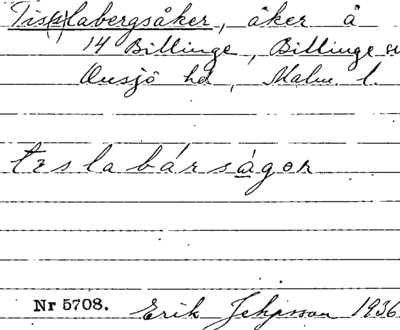 Tis(p)labergsåker, åker å
14 Billinge, Billinge sn
Onsjö hd, Malm. l.
tɪslabár̀sågoʀ
Nr 5708. Erik Jeppsson 1936